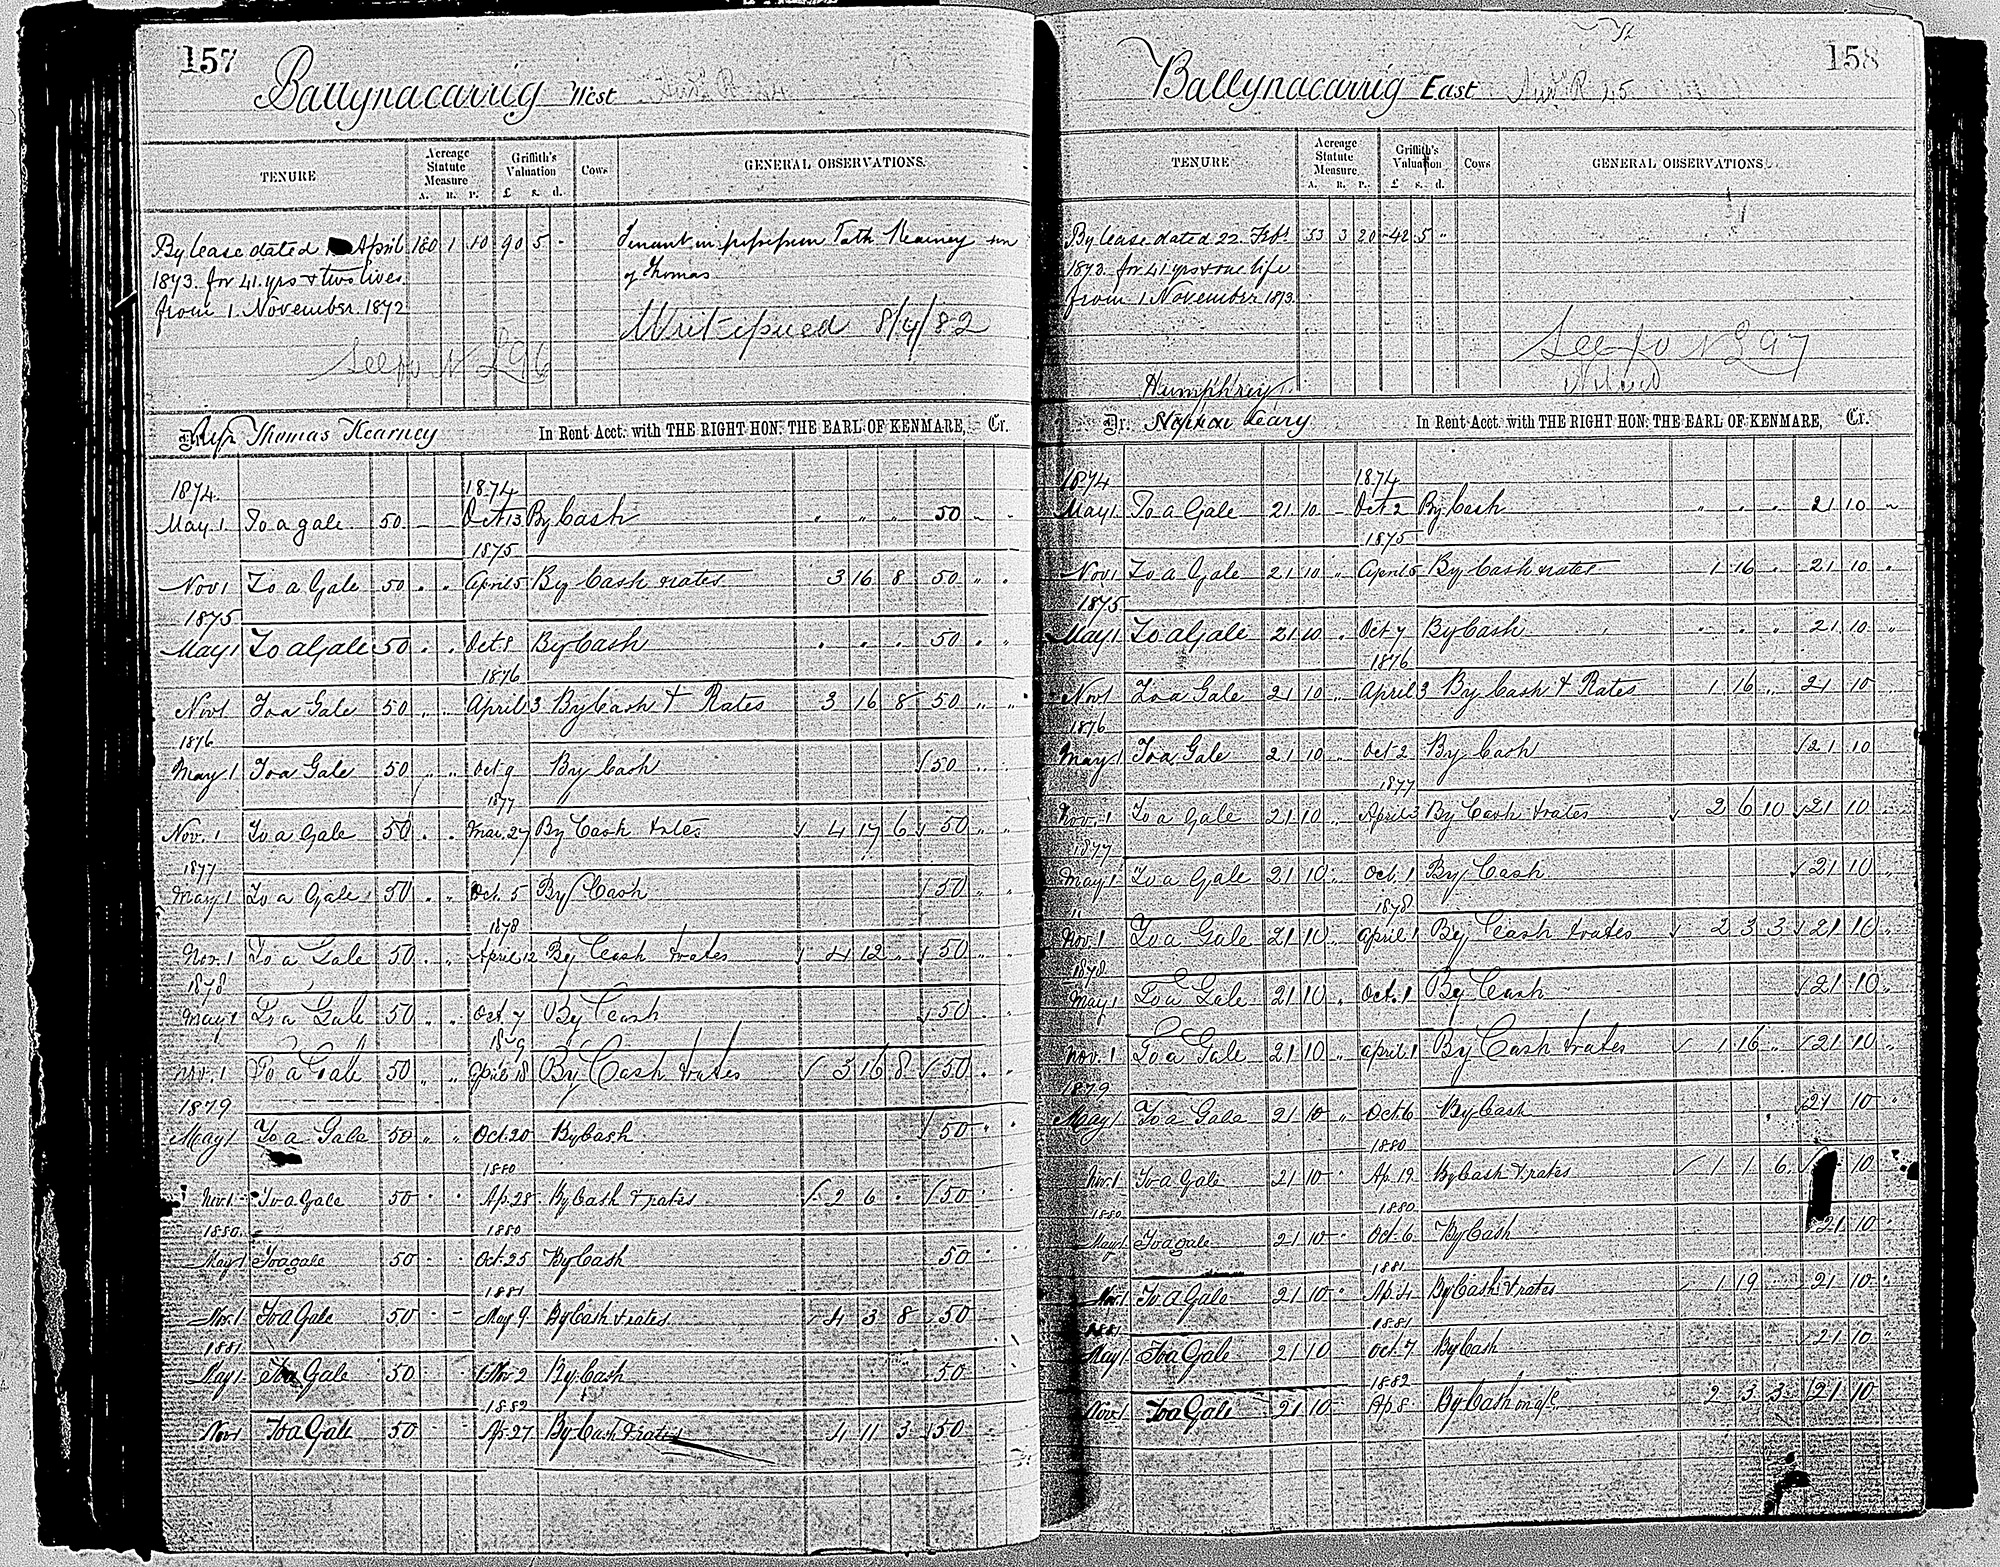 157
Ballynacarrig West
TENURE
Acreage Statute Measure
A. R. P.
Griffith's Valuation
£ s. d.
Cows
GENERAL OBSERVATIONS.
By lease dated April 180 1 10 90 5 "
1873. for 41 yrs & two lives
from 1. November. 1872
Tenant in possession Kearney son
of Thomas
Writ issued 8/4/82
See fo N L 96
Thomas Kearney In Rent Acct. with THE RIGHT HON: THE EARL OF KENMARE, Cr.
1874. 1874
May. 1 To a gale 50 — Oct 13 By Cash " " " 50 " "
1875
Nov 1 To a Gale 50 " " April 5 By Cash & rates 3 16 8 50 " "
1875
May 1 To a Gale 50 " " Oct 8 By Cash " " " 50 " "
1876
Nov 1 To a Gale 50 " " April 3 By Cash & Rates 3 16 8 50 " "
1876
May 1 To a Gale 50 " " Oct 9 By Cash 50 " "
1877
Nov. 1 To a Gale 50 " " Mar. 27 By Cash & rates 4 17 6 50 " "
1877
May 1 To a Gale 50 " " Oct. 5 By Cash 50 " "
1878
Nov. 1 To a Gale 50 " " April 12 By Cash & rates 4 12 " 50 " "
1878
May 1 To a Gale 50 " " Oct. 7 By Cash 50 " "
1879
Nov. 1 To a Gale 50 " " April 18 By Cash & rates 3 16 8 50 " "
1879
May 1 To a Gale 50 " " Oct. 20 By Cash 50 " "
1880
Nov. 1 To a Gale 50 " " Ap. 28 By Cash & rates 2 6 " 50 "
1880. 1880
May 1 To a gale 50 " " Oct. 25 By Cash 50 "
1881
Nov. 1 To a Gale 50 " " May 9 By Cash & rates 4 3 8 50 "
1881
May 1 To a Gale 50 " " Nov. 2 By Cash 50
1882
Nov 1 To a Gale 50 " Ap. 27 By Cash & rates 4 11 3 50
158
Ballynacarrig East
TENURE
Acreage Statute Measure
A. R. P.
Griffith's Valuation
£ s. d.
Cows
GENERAL OBSERVATIONS.
By lease dated 22. Feb. 53 3 20 42 5 "
1873. for 41 yrs & one life
from 1. November 1873
See fo N L 97
Noted
Humphrey
Dr. Leary In Rent Acct. with THE RIGHT HON: THE EARL OF KENMARE, Cr.
1874 1874
May 1 To a Gale 21 10 — Oct 2 By Cash " " " 21 10 "
1875
Nov 1 To a Gale 21 10 " April 5 By Cash & rates 1 16 " 21 10 "
1875
May 1 To a Gale 21 10 " Oct 7 By Cash " " " 21 10 "
1876
Nov 1 To a Gale 21 10 " April 3 By Cash & Rates 1 16 " 21 10
1876
May 1 To a Gale 21 10 " Oct. 2 By Cash 21 10
1877
Nov. 1 To a Gale 21 10 " April 3 By Cash & rates 2 6 10 21 10 "
1877
May 1 To a Gale 21 10 " Oct. 1 By Cash 21 10 "
1878
Nov. 1 To a Gale 21 10 " April 1 By Cash & rates 2 3 3 21 10 "
1878
May 1 To a Gale 21 10 " Oct. 1 By Cash 21 10 "
Nov. 1 To a Gale 21 10 " April 1 By Cash & rates 1 16 " 21 10 "
1879
May 1 To a Gale 21 10 " Oct. 6 By Cash 21 10 "
1880
Nov. 1 To a Gale 21 10 " Ap. 19 By Cash & rates 1 1 6 10
1880 1880
May 1 To a gale 21 10 " Oct. 6 By Cash 21 10 "
1881
Nov. 1 To a Gale 21 10 " Ap. 4 By Cash & rates 1 19 " 21 10 "
1881 1881
May 1 To a Gale 21 10 Oct. 7 By Cash 21 10 "
1882
Nov 1 To a Gale 21 10 Ap. 8 By Cash 2 3 3 21 10